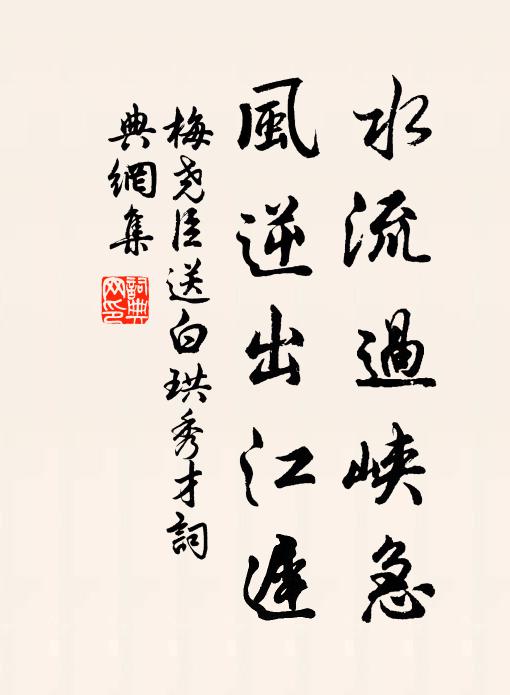 水流過峽急
風逆出江遲
梅尭臣送白珙秀才詞
典網集
詞典網印